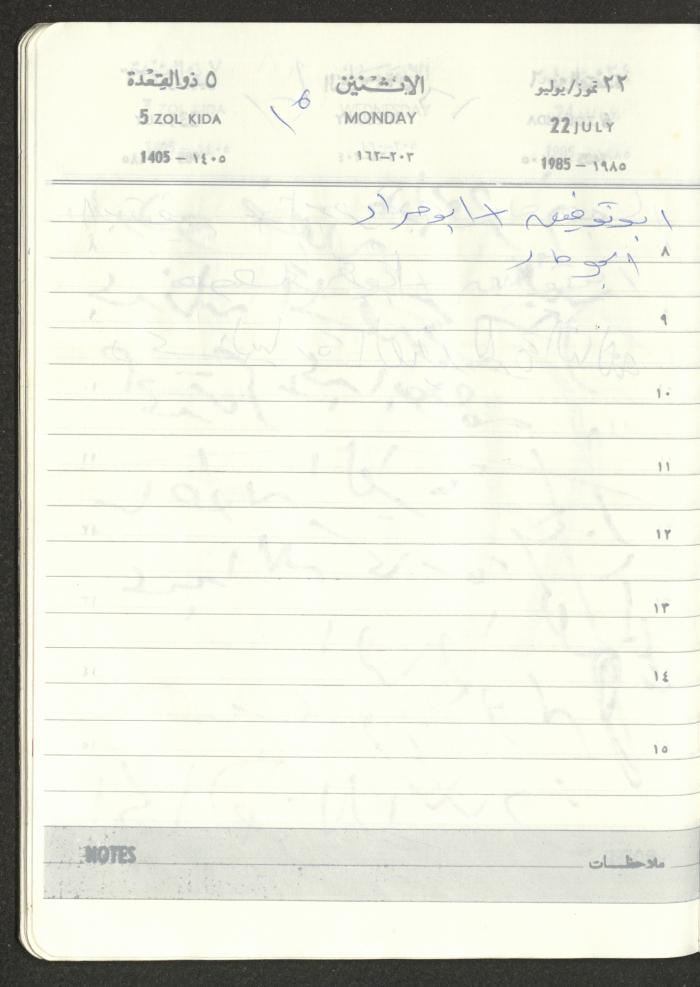 ٥ ذوالقعدة الاثنين ٢٢ تموز/يوليو
5 ZOL KIDA MONDAY 22 JULY
1405 — ١٤٠٥ ١٦٢-٢٠٣ 1985 — ١٩٨٥
ابو توفيق + ابو جرار
٨
٩
١٠
١١
١٢
١٣
١٤
١٥
NOTES ملاحظات